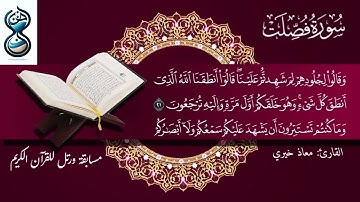 سُورَةُ فُصِّلَتْ
وَقَالُوا۟ لِجُلُودِهِمْ لِمَ شَهِدتُّمْ عَلَيْنَا ۖ قَالُوٓا۟ أَنطَقَنَا ٱللَّهُ ٱلَّذِىٓ
أَنطَقَ كُلَّ شَىْءٍ وَهُوَ خَلَقَكُمْ أَوَّلَ مَرَّةٍ وَإِلَيْهِ تُرْجَعُونَ ٢١
وَمَا كُنتُمْ تَسْتَتِرُونَ أَن يَشْهَدَ عَلَيْكُمْ سَمْعُكُمْ وَلَآ أَبْصَٰرُكُمْ
القارئ: معاذ خيري
مسابقة ورتل للقرآن الكريم